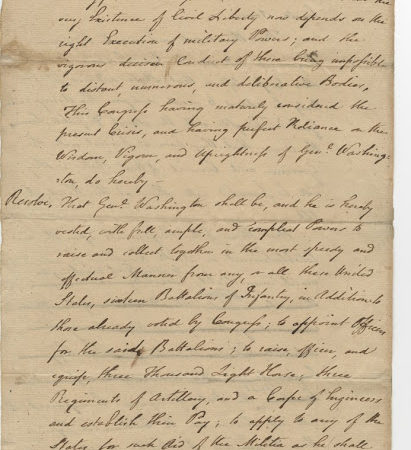 the
very Existence of Civil Liberty now depends on the
right Execution of military Powers; and the
vigorous decisive Conduct of these being impossible
to distant, numerous, and deliberative Bodies,
This Congress having maturely considered the
present Crisis, and having perfect Reliance on the
Wisdom, Vigour, and Uprightness of Genl. Washing-
ton, do hereby —
Resolve, That Genl. Washington shall be, and he is hereby
vested, with full, ample, and compleat Powers to
raise and collect together in the most speedy and
effectual Manner from any, or all these United
States, sixteen Battalions of Infantry, in Addition to
those already voted by Congress; to appoint Officers
for the said Battalions; to raise, officer, and
equip, three Thousand Light Horse, three
Regiments of Artillery, and a Corps of Engineers
and establish their Pay; to apply to any of the
States for such Aid of the Militia as he shall